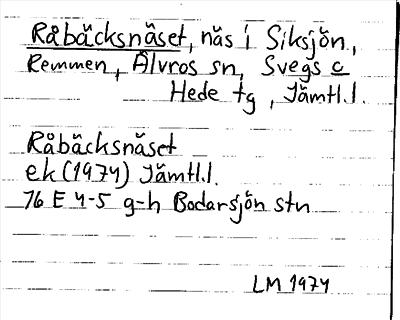 Råbäcksnäset, näs i Siksjön,
Remmen, Älvros sn, Svegs c
Hede tg, Jämtl.l.
Råbäcksnäset
ek (1974) Jämtl.l.
16 E 4-5 g-h Bodarsjön stn
LM 1974